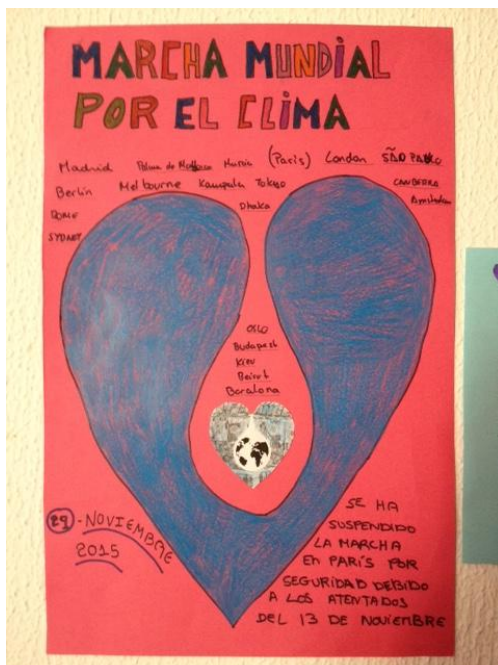 MARCHA MUNDIAL
POR EL CLIMA
Madrid Palma de Mallorca Murcia (París) London SÃO PABLO
Berlín Melbourne Kampala Tokyo CANBERRA
ROME Dhaka Amsterdam
SYDNEY
OSLO
Budapest
Kiev
Beirut
Barcelona
29 - NOVIEMBRE
2015
SE HA
SUSPENDIDO
LA MARCHA
EN PARÍS POR
SEGURIDAD DEBIDO
A LOS ATENTADOS
DEL 13 DE NOVIEMBRE